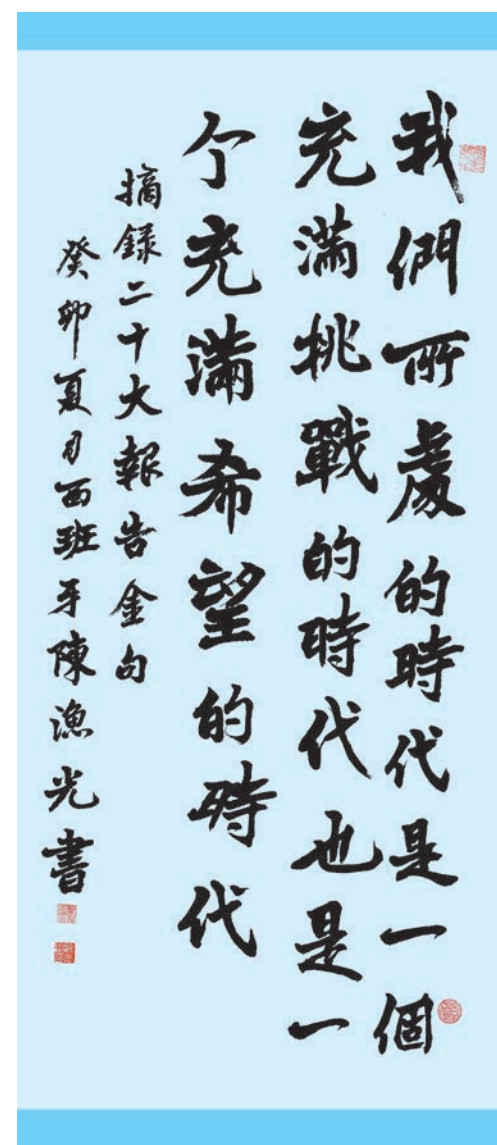 我們所處的時代是一個
充滿挑戰的時代也是一
个充滿希望的時代
摘録二十大報告金句
癸卯夏月西班牙陳漁光書